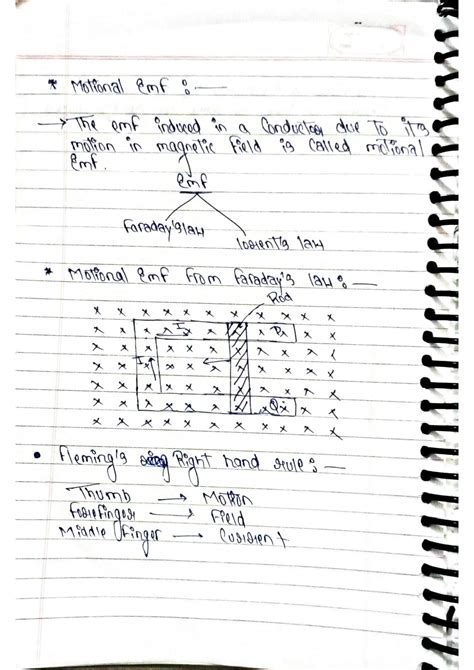 * Motional Emf :—
→ The emf induced in a Conductor due to its
motion in magnetic field is called motional
Emf.
Emf
Faraday's law
lorent's law
* Motional Emf from faraday's law :—
Rod
x x x x x x x x x x
x I x x x x x x
I x x x x x x x x
x x x x x x x x
x x x x x x x x
x x x x x x x Q x x x
x x x x x x x x x x
• Fleming's Right hand rule :—
Thumb → Motion
Forefinger → Field
Middle finger → Current